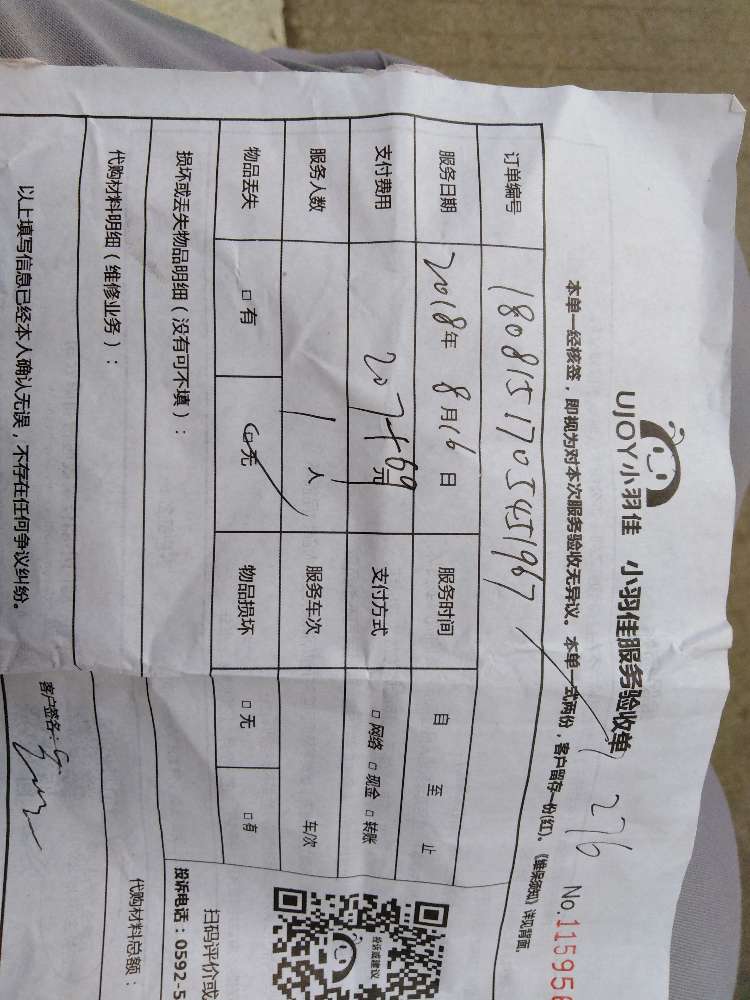 UJOY小羽佳 小羽佳服务验收单
No.115956
本单一经核签，即视为对本次服务验收无异议。本单一式两份，客户留存一份(红)。《维保须知》详见背面。
订单编号 1808151705451967 276
服务日期 2018年 8月16日 服务时间 自 至 止
支付费用 207+69元 支付方式 □ 网络 □ 现金 □ 转账
服务人数 1人 服务车次 车/次
物品丢失 □ 有 □ 无 物品损坏 □ 无 □ 有
损坏或丢失物品明细（没有可不填）：
代购材料明细（维修业务）：
代购材料总额：
以上填写信息已经本人确认无误，不存在任何争议纠纷。
客户签名：
投诉或建议
扫码评价或
投诉电话：0592-5